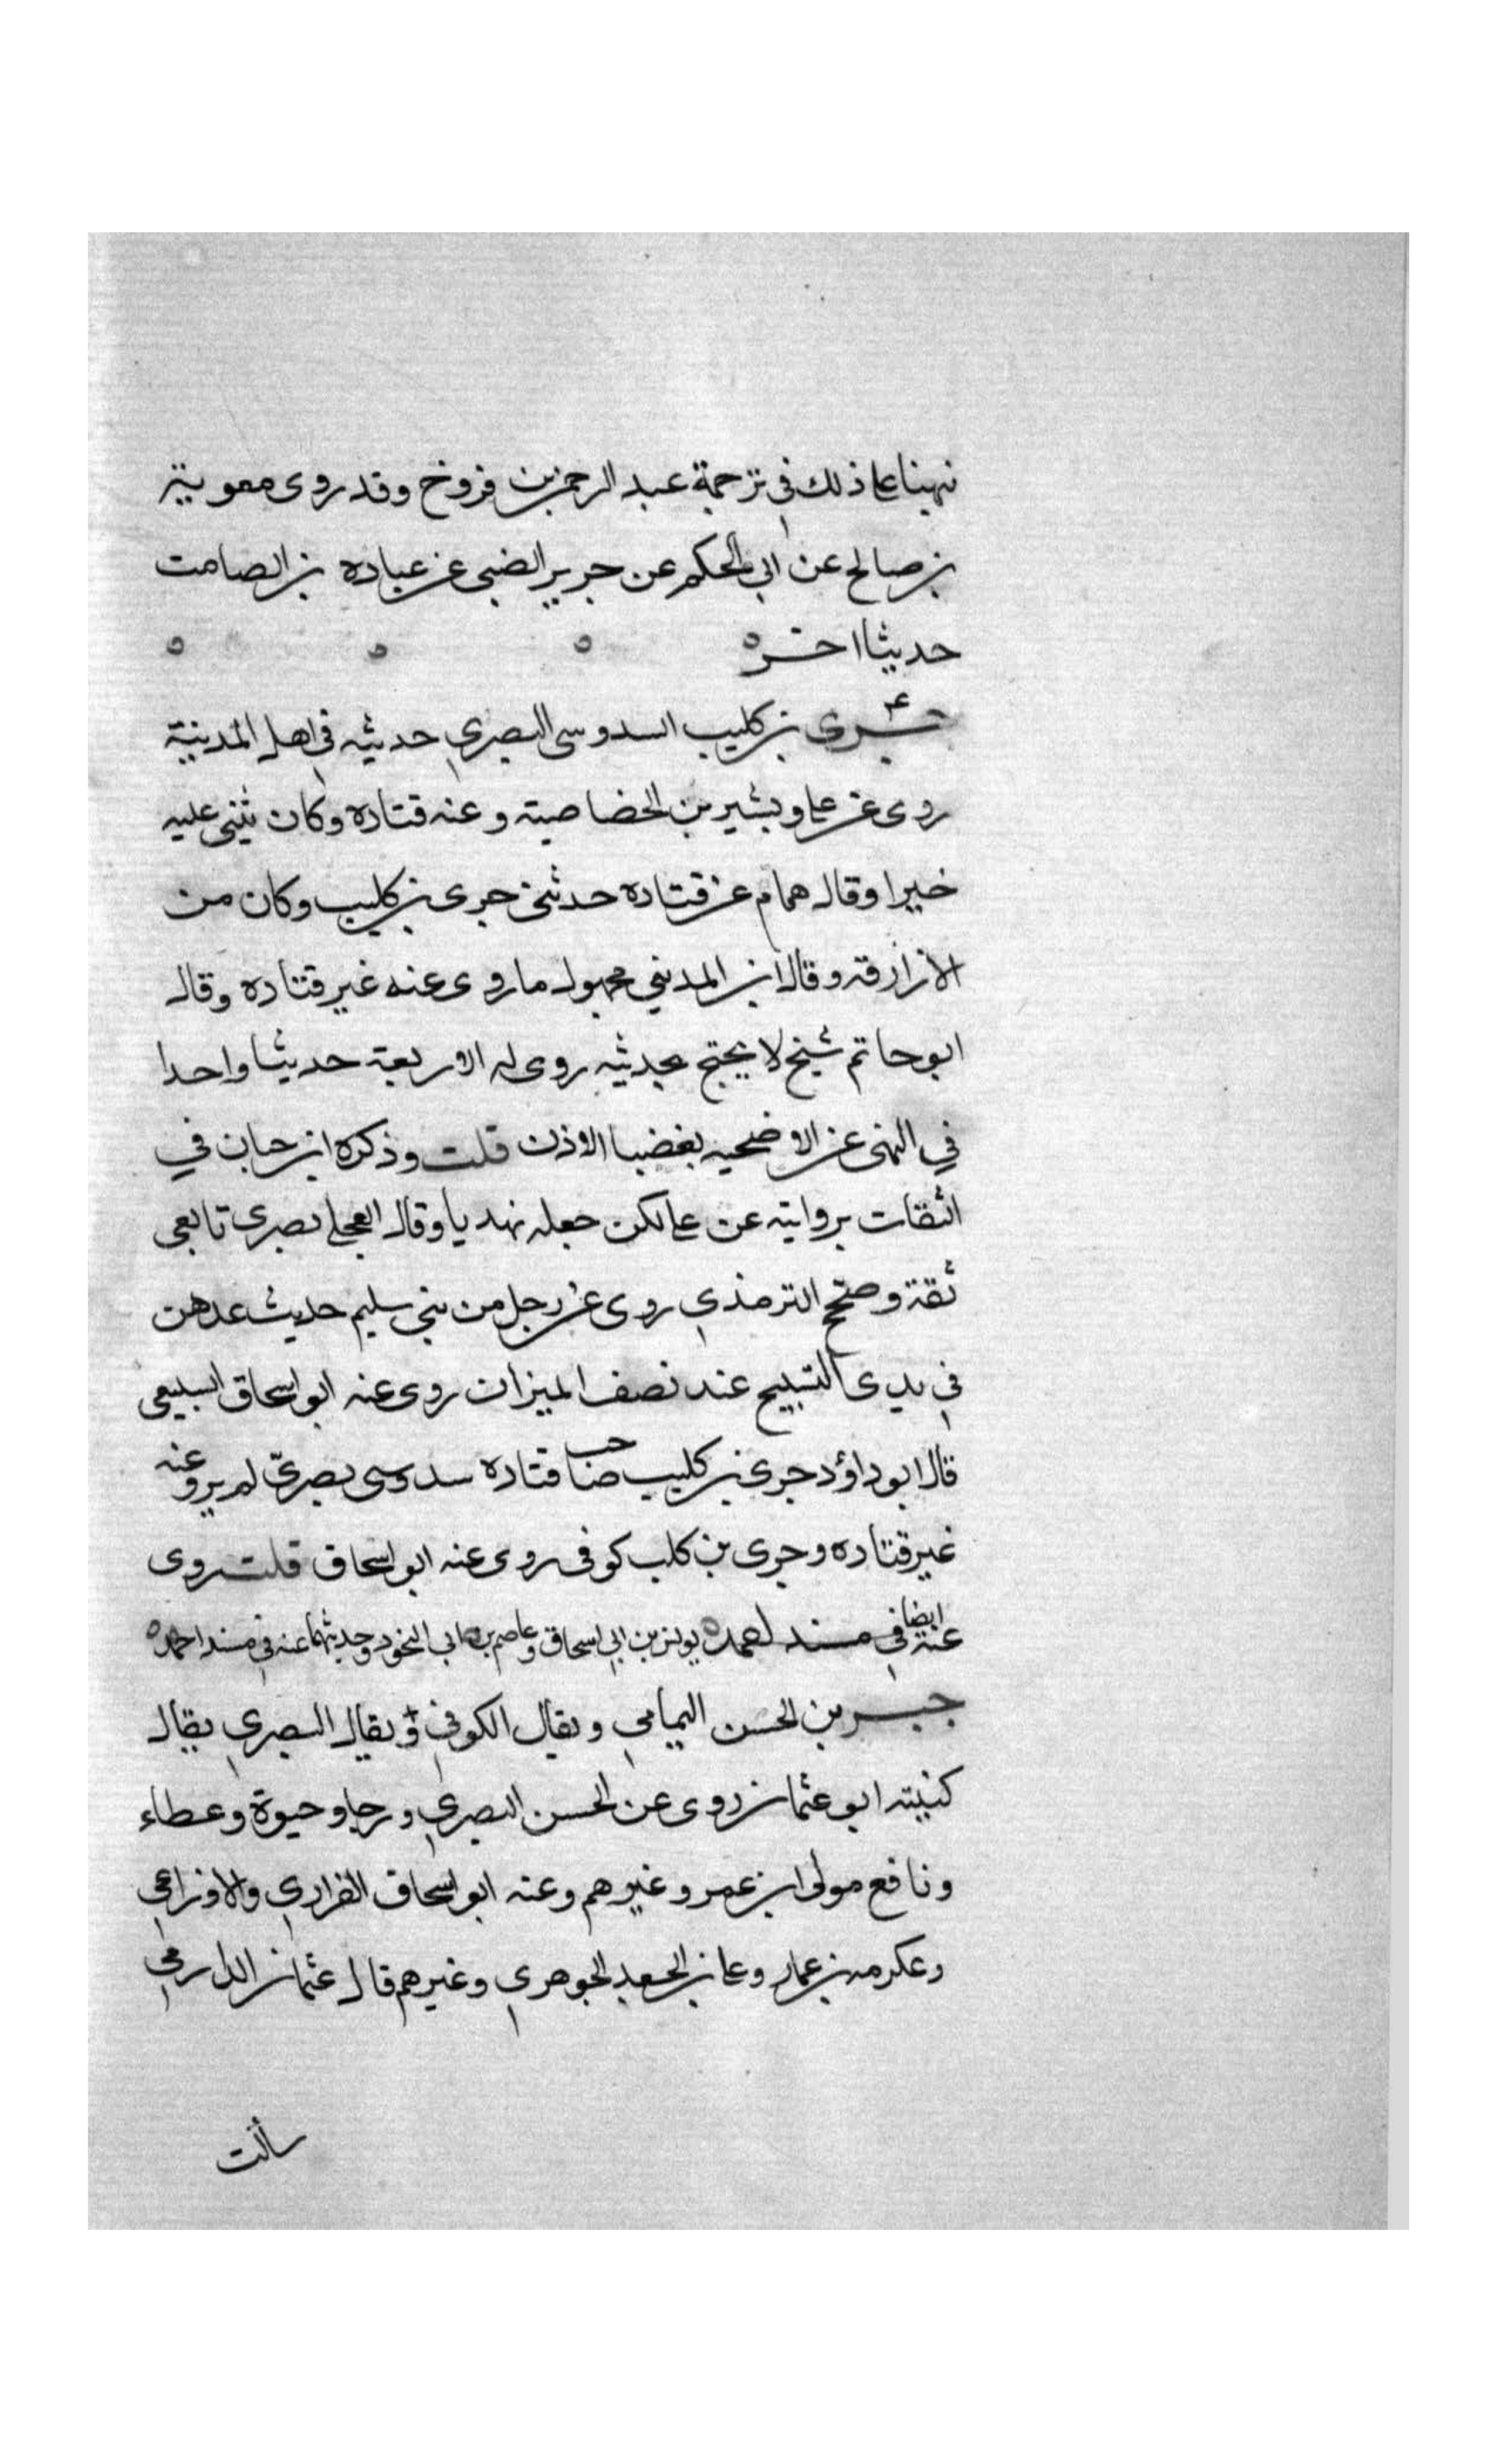 نبهنا على ذلك في ترجمة عبد الرحمن بن فروخ وقد روى معوية
بن صالح عن ابي الحكم عن جرير الضبي عن عباده بن الصامت
حديثا اخر ه ه ه ه
جرى بن كليب السدوسى البصري حديثه في اهل المدينة
روى عن على وبشير بن الخصاصية وعنه قتاده وكان يثنى عليه
خيرا وقال همام عن قتاده حدثنى جرى بن كليب وكان من
الازارقه وقال ابن المديني مجهول ما روى عنه غير قتاده وقال
ابو حاتم شيخ لا يحتج بحديثه روى له الاربعة حديثا واحدا
في النهى عن الاضحيه بغضبا الاذن قلت وذكره ابن حبان في
الثقات بروايته عن على لكن جعله نهديا وقال العجلى بصرى تابعى
ثقة وصحح الترمذي روى عن رجل من بنى سليم حديث عدهن
في يدى التسبيح عند نصف الميزان روى عنه ابو اسحاق السبيعى
قال ابو داؤد جرى بن كليب صاحب قتاده سدوسى بصرىّ لم يرو عنه
غير قتاده وجرى بن كلب كوفى روى عنه ابو اسحاق قلت روى
عنه ايضا في مسند احمد ه يونس بن ابي اسحاق وعاصم بن ابي النجود وحديثهما عنه في مسند احمد ه
جبر بن الحسن اليمامي ويقال الكوفي ويقال البصري يقال
كنيته ابو عثمان روى عن الحسن البصري ورجاو حيوة وعطاء
ونافع مولى ابن عمر وغيرهم وعنه ابو اسحاق الفزاري والاوزاعي
وعكرمه بن عمار وعلى بن الجعد الجوهري وغيرهم قال عثمان الدارمي
سألت